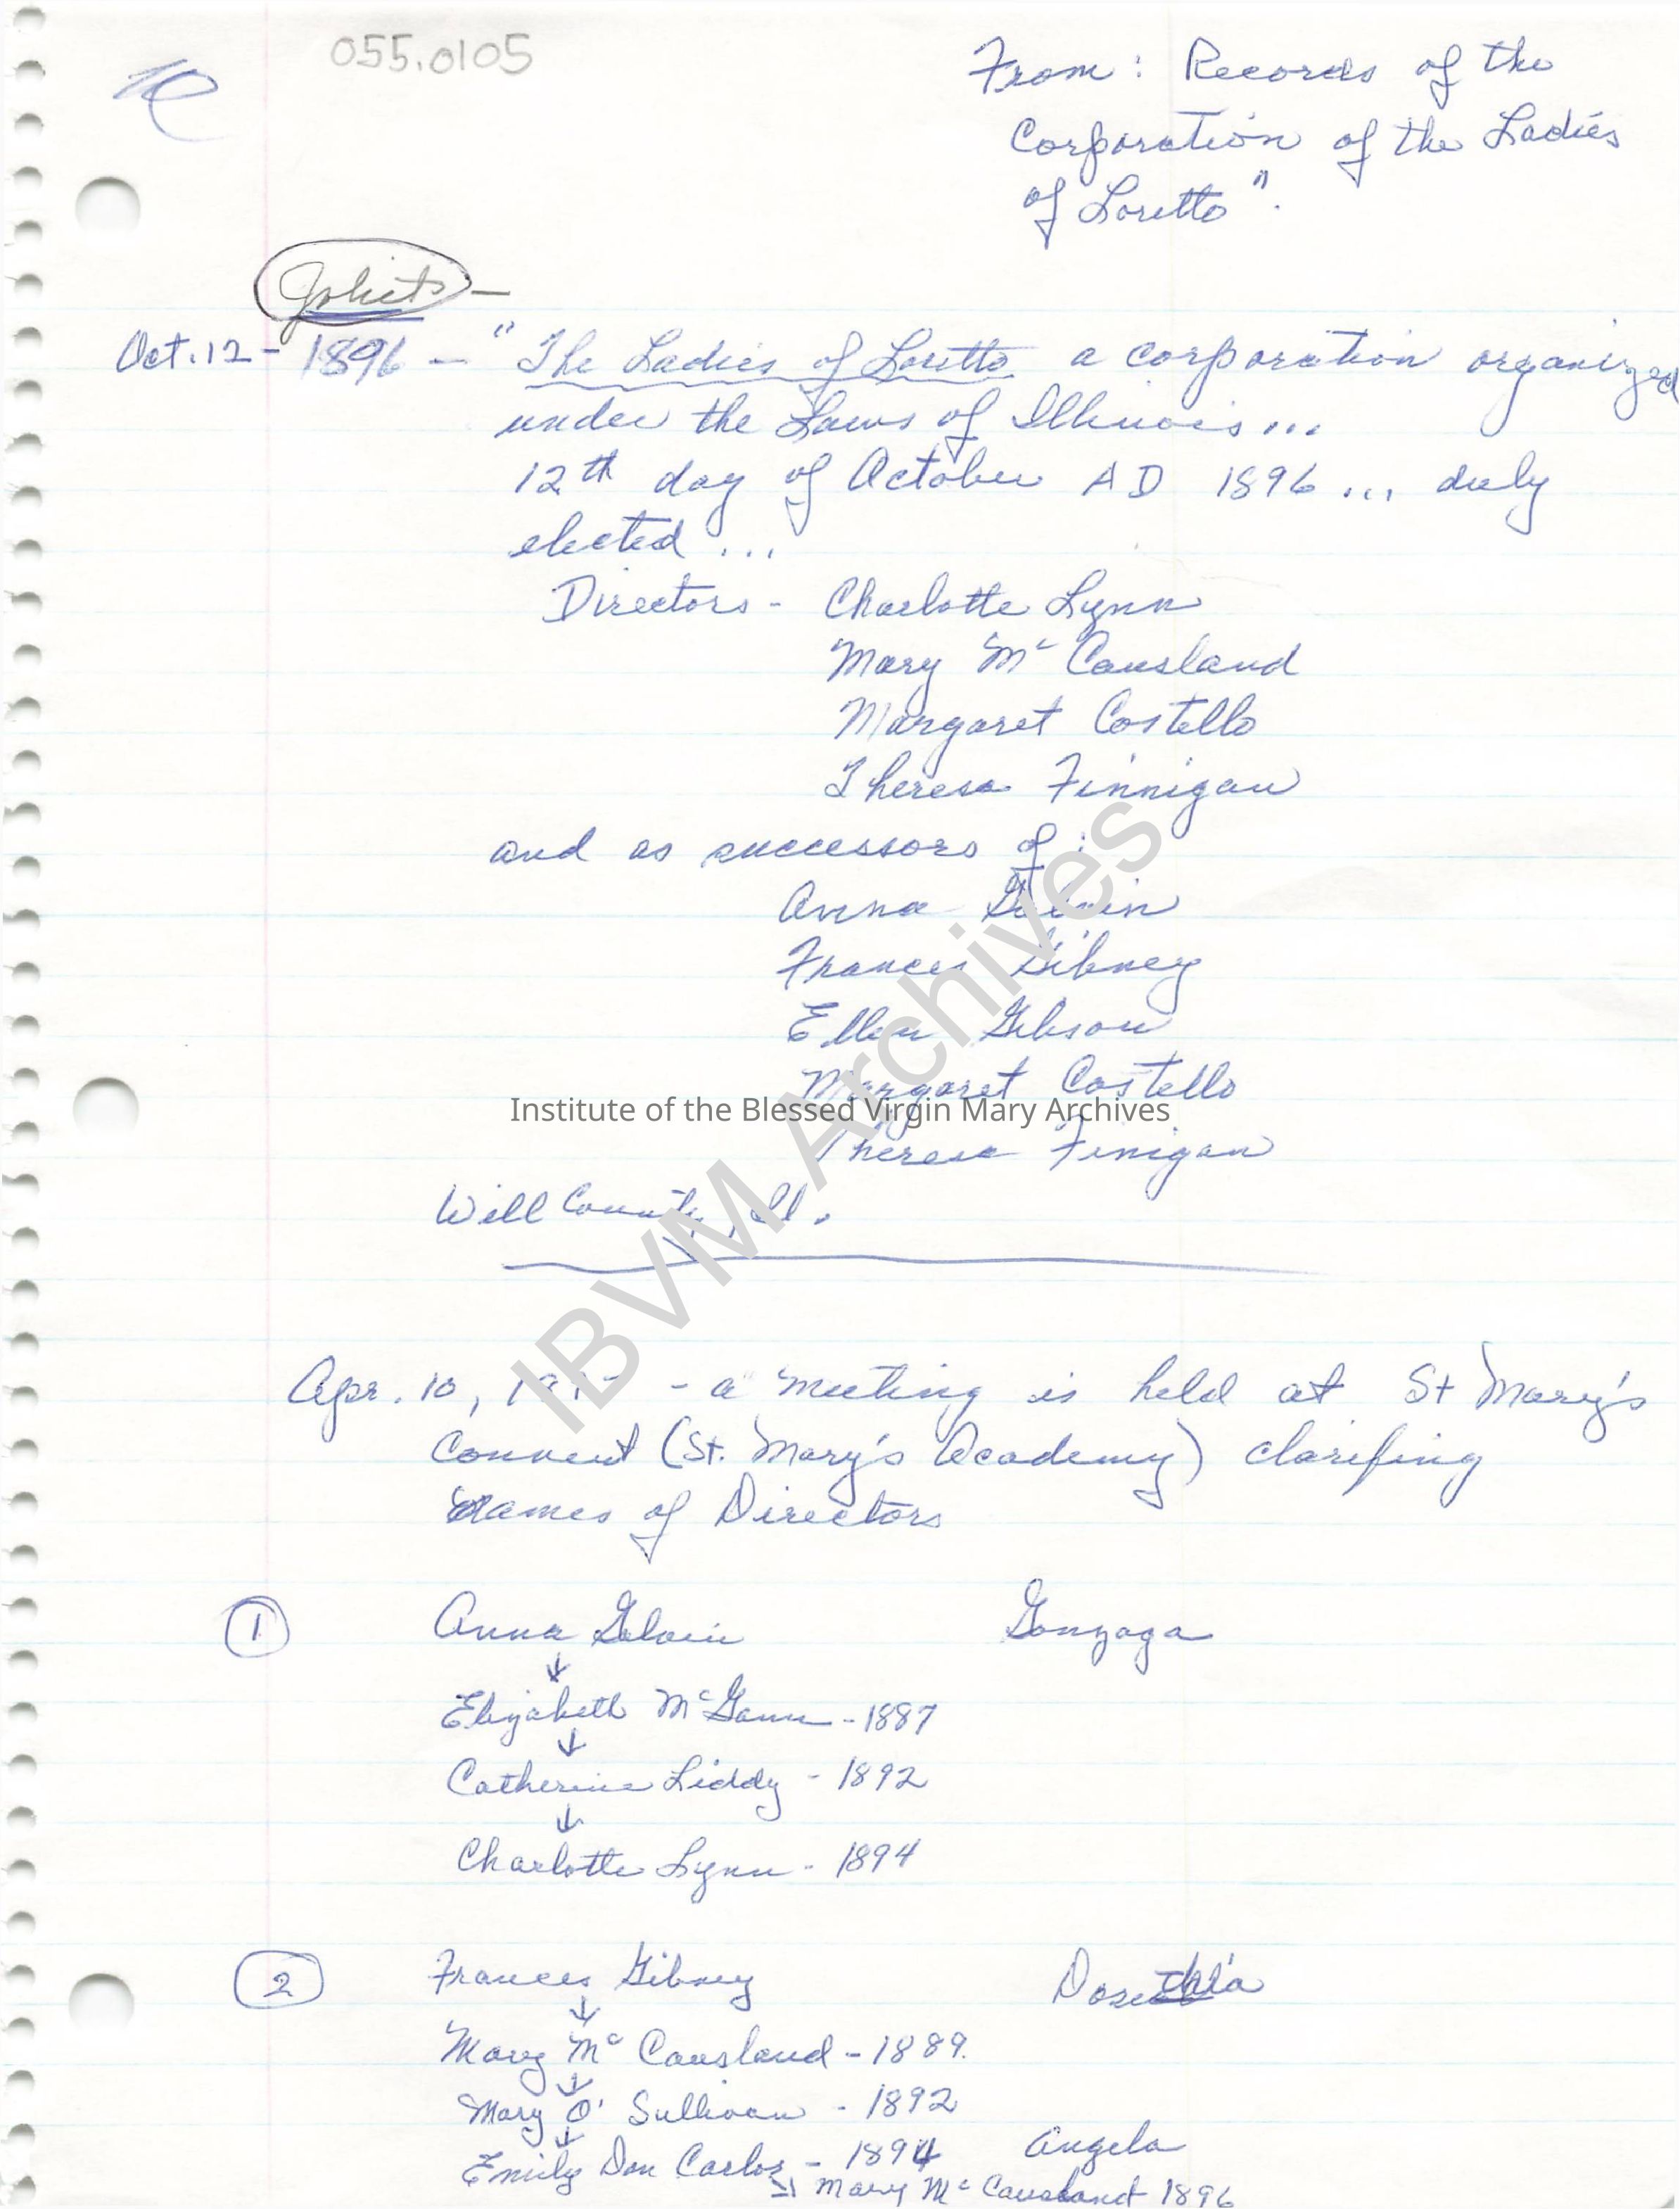 055.0105
From: Records of the
Corporation of the Ladies
of Loretto".
Joliet -
Oct. 12 - 1896 - "The Ladies of Loretto a corporation organized
under the Laws of Illinois...
12th day of October AD 1896 ... duly
elected ...
Directors - Charlotte Lynn
Mary Mc Causland
Margaret Costello
Theresa Finnigan
and as successors of:
Anna Galvin
Frances Gibney
Ellen Gibson
Margaret Costello
Institute of the Blessed Virgin Mary Archives
Theresa Finigan
Will County, Il.
IBVM Archives
Apr. 10, - a meeting is held at St Mary's
Convent (St. Mary's Academy) clarifing
names of Directors
1 Anna Galvin Gonzaga
↓
Elizabeth McGann - 1887
↓
Catherine Liddy - 1892
↓
Charlotte Lynn - 1894
2 Frances Gibney
↓
Mary Mc Causland - 1889.
↓
Mary O' Sullivan - 1892
↓
Emily Don Carlos - 1894 Angela
↘ Mary Mc Causland 1896